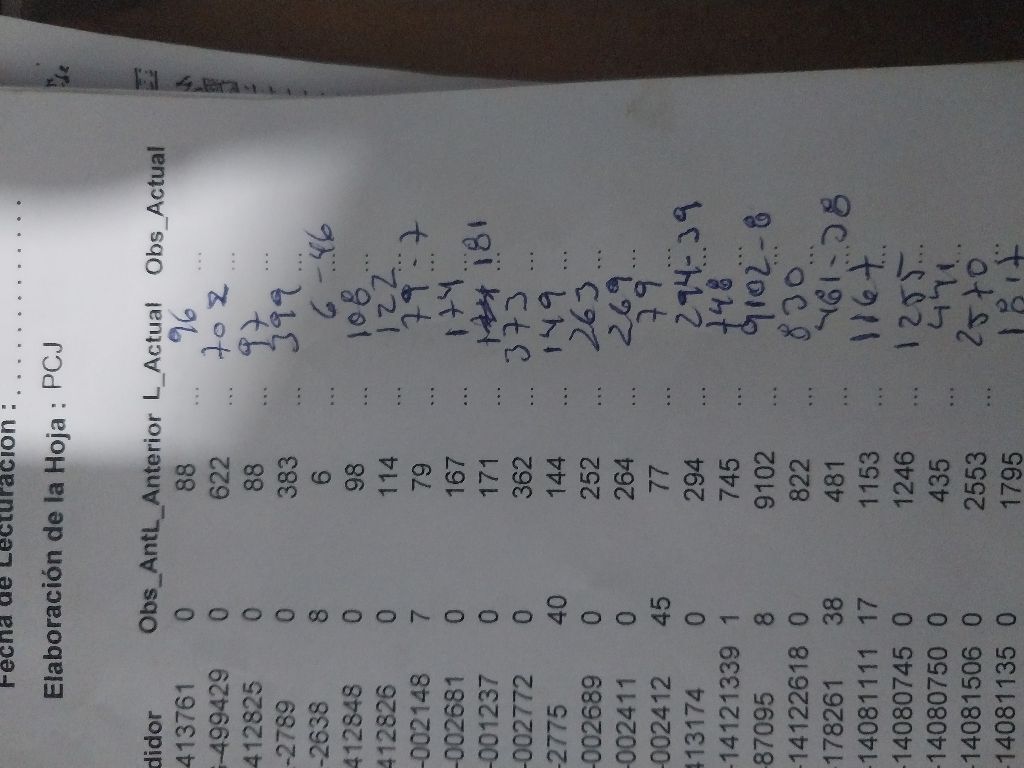 Fecha de Lecturación : ....................
Elaboración de la Hoja : PCJ
didor Obs_AntL_Anterior L_Actual Obs_Actual
413761 0 88 ... 96
-499429 0 622 ... 702 ...
412825 0 88 ... 97 ...
-2789 0 383 ... 399 ...
-2638 8 6 ... 6 - 46
412848 0 98 ... 108 ...
412826 0 114 ... 122 ...
-002148 7 79 ... 79 - 7
-002681 0 167 ... 174 ...
-001237 0 171 ... 181
-002772 0 362 ... 373 ...
-27775 40 144 ... 149 ...
-002689 0 252 ... 263 ...
-002411 0 264 ... 269 ...
-002412 45 77 ... 79 ...
413174 0 294 ... 294-39
-14121339 1 745 ... 748 ...
87095 8 9102 ... 9102-8
-14122618 0 822 ... 830 ...
178261 38 481 ... 481-38
-14081111 17 1153 ... 1167 ...
-14080745 0 1246 ... 1255 ...
-14080750 0 435 ... 441 ...
-14081506 0 2553 ... 2570 ...
-14081135 0 1795 1817